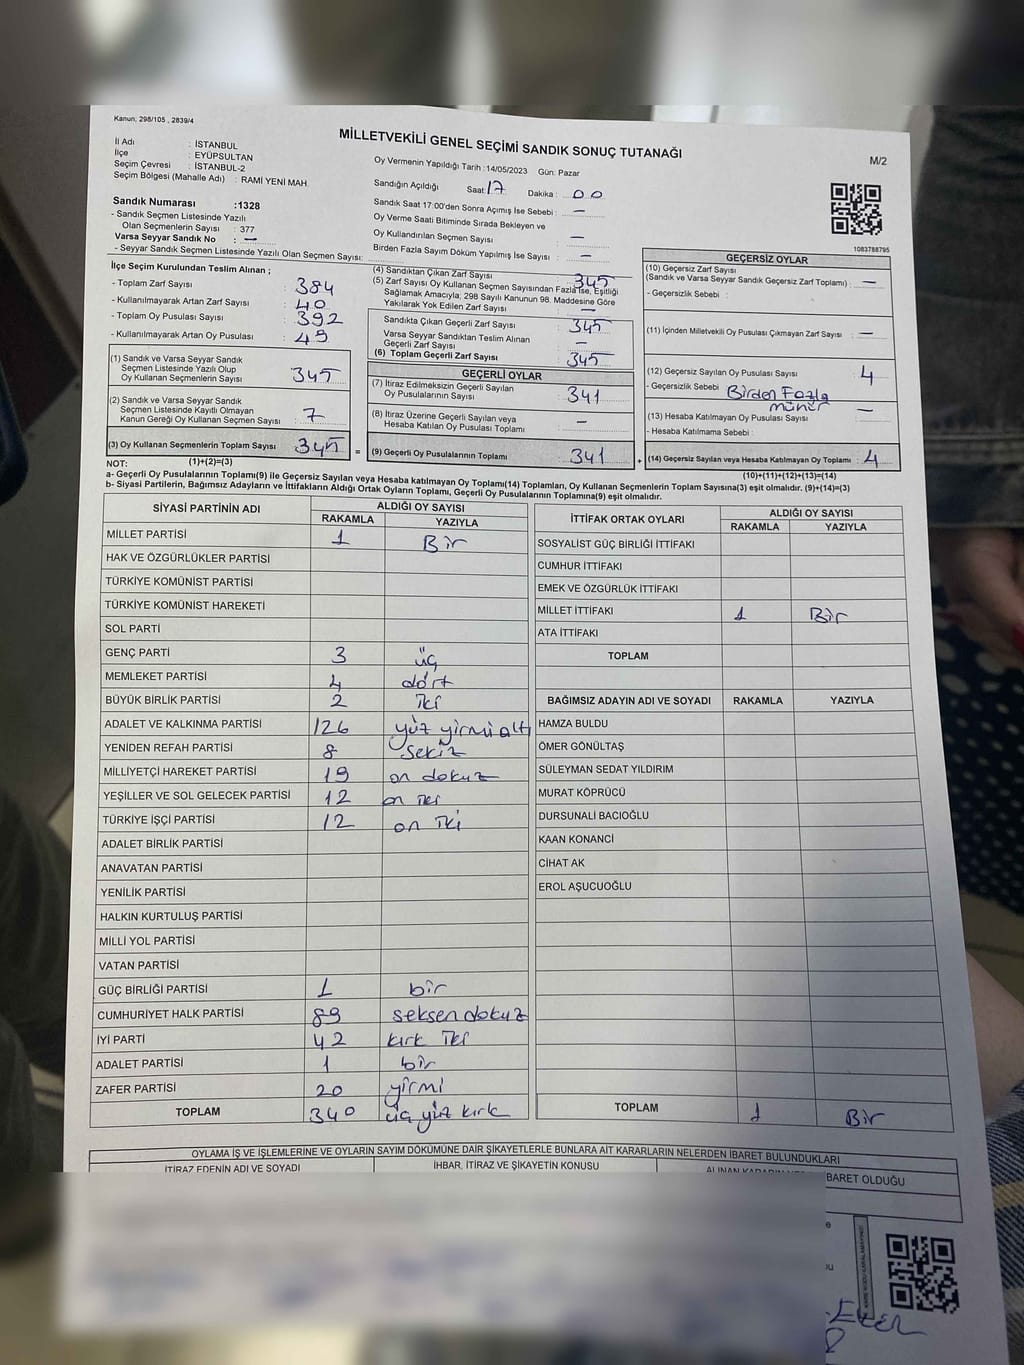 Kanun; 298/105 , 2839/4
MİLLETVEKİLİ GENEL SEÇİMİ SANDIK SONUÇ TUTANAĞI
M/2
İl Adı : İSTANBUL
İlçe : EYÜPSULTAN
Seçim Çevresi : İSTANBUL-2
Seçim Bölgesi (Mahalle Adı) : RAMİ YENİ MAH.
Sandık Numarası :1328
- Sandık Seçmen Listesinde Yazılı
Olan Seçmenlerin Sayısı : 377
Varsa Seyyar Sandık No : —
- Seyyar Sandık Seçmen Listesinde Yazılı Olan Seçmen Sayısı:
Oy Vermenin Yapıldığı Tarih :14/05/2023 Gün: Pazar
Sandığın Açıldığı Saat: 17 Dakika : 00
Sandık Saat 17:00'den Sonra Açılmış İse Sebebi : —
Oy Verme Saati Bitiminde Sırada Bekleyen ve
Oy Kullandırılan Seçmen Sayısı : —
Birden Fazla Sayım Döküm Yapılmış İse Sayısı : —
1083788795
İlçe Seçim Kurulundan Teslim Alınan ;
- Toplam Zarf Sayısı : 384
- Kullanılmayarak Artan Zarf Sayısı : 40
- Toplam Oy Pusulası Sayısı : 392
- Kullanılmayarak Artan Oy Pusulası : 49
(1) Sandık ve Varsa Seyyar Sandık
Seçmen Listesinde Yazılı Olup
Oy Kullanan Seçmenlerin Sayısı : 345
(2) Sandık ve Varsa Seyyar Sandık
Seçmen Listesinde Kayıtlı Olmayan
Kanun Gereği Oy Kullanan Seçmen Sayısı : 7
(3) Oy Kullanan Seçmenlerin Toplam Sayısı : 345
=
(4) Sandıktan Çıkan Zarf Sayısı : 345
(5) Zarf Sayısı Oy Kullanan Seçmen Sayısından Fazla İse, Eşitliği
Sağlamak Amacıyla; 298 Sayılı Kanunun 98. Maddesine Göre
Yakılarak Yok Edilen Zarf Sayısı : —
Sandıkta Çıkan Geçerli Zarf Sayısı : 345
Varsa Seyyar Sandıktan Teslim Alınan
Geçerli Zarf Sayısı : —
(6) Toplam Geçerli Zarf Sayısı : 345
GEÇERLİ OYLAR
(7) İtiraz Edilmeksizin Geçerli Sayılan
Oy Pusulalarının Sayısı : 341
(8) İtiraz Üzerine Geçerli Sayılan veya
Hesaba Katılan Oy Pusulası Toplamı : —
(9) Geçerli Oy Pusulalarının Toplamı : 341
+
GEÇERSİZ OYLAR
(10) Geçersiz Zarf Sayısı
(Sandık ve Varsa Seyyar Sandık Geçersiz Zarf Toplamı) : —
- Geçersizlik Sebebi :
(11) İçinden Milletvekili Oy Pusulası Çıkmayan Zarf Sayısı : —
(12) Geçersiz Sayılan Oy Pusulası Sayısı : 4
- Geçersizlik Sebebi : Birden Fazla
mühür
(13) Hesaba Katılmayan Oy Pusulası Sayısı : —
- Hesaba Katılmama Sebebi :
(14) Geçersiz Sayılan veya Hesaba Katılmayan Oy Toplamı : 4
NOT: (1)+(2)=(3)
(10)+(11)+(12)+(13)=(14)
a- Geçerli Oy Pusulalarının Toplamı(9) ile Geçersiz Sayılan veya Hesaba katılmayan Oy Toplamı(14) Toplamları, Oy Kullanan Seçmenlerin Toplam Sayısına(3) eşit olmalıdır. (9)+(14)=(3)
b- Siyasi Partilerin, Bağımsız Adayların ve İttifakların Aldığı Ortak Oyların Toplamı, Geçerli Oy Pusulalarının Toplamına(9) eşit olmalıdır.
SİYASİ PARTİNİN ADI ALDIĞI OY SAYISI
RAKAMLA YAZIYLA
MİLLET PARTİSİ 1 Bir
HAK VE ÖZGÜRLÜKLER PARTİSİ
TÜRKİYE KOMÜNİST PARTİSİ
TÜRKİYE KOMÜNİST HAREKETİ
SOL PARTİ
GENÇ PARTİ 3 üç
MEMLEKET PARTİSİ 4 dört
BÜYÜK BİRLİK PARTİSİ 2 iki
ADALET VE KALKINMA PARTİSİ 126 yüz yirmi altı
YENİDEN REFAH PARTİSİ 8 sekiz
MİLLİYETÇİ HAREKET PARTİSİ 19 on dokuz
YEŞİLLER VE SOL GELECEK PARTİSİ 12 on iki
TÜRKİYE İŞÇİ PARTİSİ 12 on iki
ADALET BİRLİK PARTİSİ
ANAVATAN PARTİSİ
YENİLİK PARTİSİ
HALKIN KURTULUŞ PARTİSİ
MİLLİ YOL PARTİSİ
VATAN PARTİSİ
GÜÇ BİRLİĞİ PARTİSİ 1 bir
CUMHURİYET HALK PARTİSİ 89 seksen dokuz
İYİ PARTİ 42 kırk iki
ADALET PARTİSİ 1 bir
ZAFER PARTİSİ 20 yirmi
TOPLAM 340 üç yüz kırk
İTTİFAK ORTAK OYLARI ALDIĞI OY SAYISI
RAKAMLA YAZIYLA
SOSYALİST GÜÇ BİRLİĞİ İTTİFAKI
CUMHUR İTTİFAKI
EMEK VE ÖZGÜRLÜK İTTİFAKI
MİLLET İTTİFAKI 1 Bir
ATA İTTİFAKI
TOPLAM
BAĞIMSIZ ADAYIN ADI VE SOYADI RAKAMLA YAZIYLA
HAMZA BULDU
ÖMER GÖNÜLTAŞ
SÜLEYMAN SEDAT YILDIRIM
MURAT KÖPRÜCÜ
DURSUNALİ BACIOĞLU
KAAN KONANCİ
CİHAT AK
EROL AŞUCUOĞLU
TOPLAM 1 Bir
OYLAMA İŞ VE İŞLEMLERİNE VE OYLARIN SAYIM DÖKÜMÜNE DAİR ŞİKAYETLERLE BUNLARA AİT KARARLARIN NELERDEN İBARET BULUNDUKLARI
İTİRAZ EDENİN ADI VE SOYADI İHBAR, İTİRAZ VE ŞİKAYETİN KONUSU BARET OLDUĞU